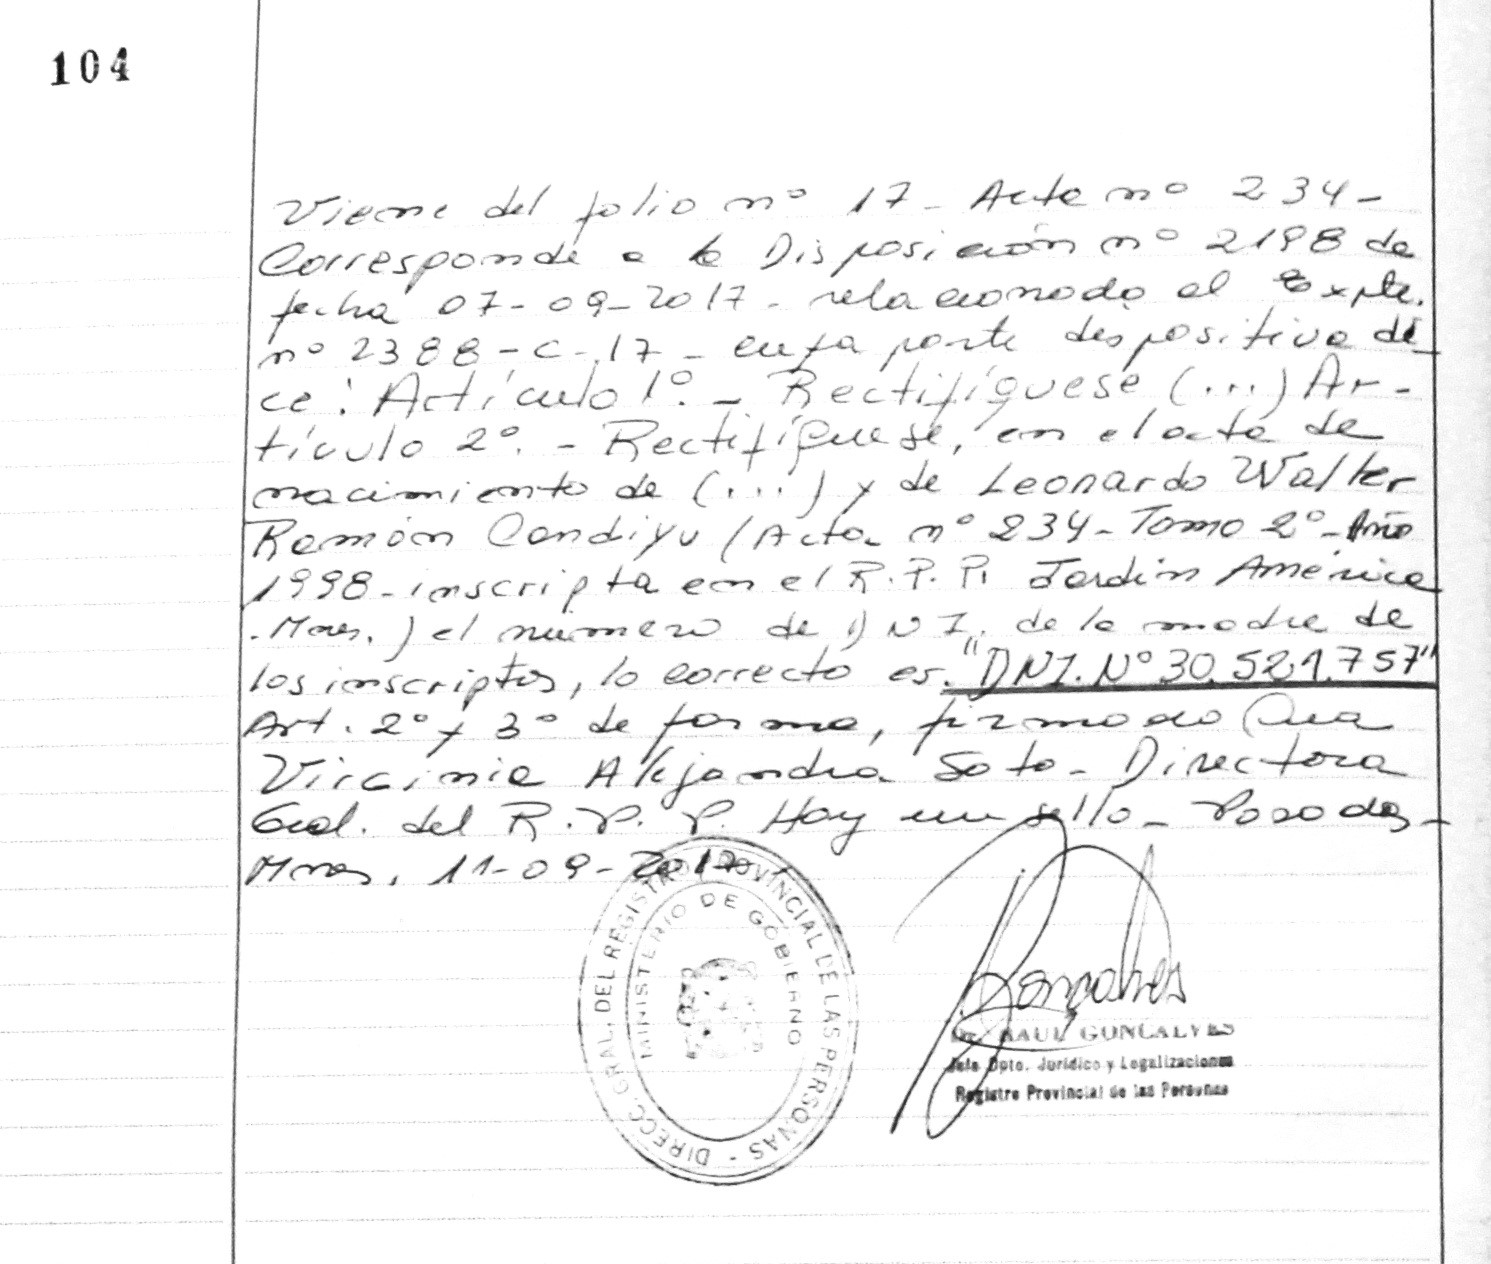 104
Viene del folio nº 17 - Acta nº 234 -
Corresponde a la Disposición nº 2198 de
fecha 07-09-2017 - relacionado al Expte.
nº 2388-C-17 - cuya parte dispositiva di
ce: Artículo 1º. - Rectifíquese (...) Ar-
tículo 2º. - Rectifíquese, en el acta de
nacimiento de (...) y de Leonardo Walter
Ramón Candiyu (Acta nº 234 - Tomo 2º - Año
1998 - inscripta en el R.P.P. Jardín América
- Mnes.) el número de DNI. de la madre de
los inscriptos, lo correcto es. "DNI. Nº 30.521.757"
Art. 2º y 3º de forma, firmado
Virginia Alejandra Soto - Directora
Gral. del R.P.P. Hay un sello - Posadas -
Mnes, 11-09-2017
DIRECC. GRAL. DEL REGISTRO PROVINCIAL DE LAS PERSONAS -
MINISTERIO DE GOBIERNO
Goncalves
Dr. RAUL GONCALVES
Jefe Dpto. Jurídico y Legalizaciones
Registro Provincial de las Personas